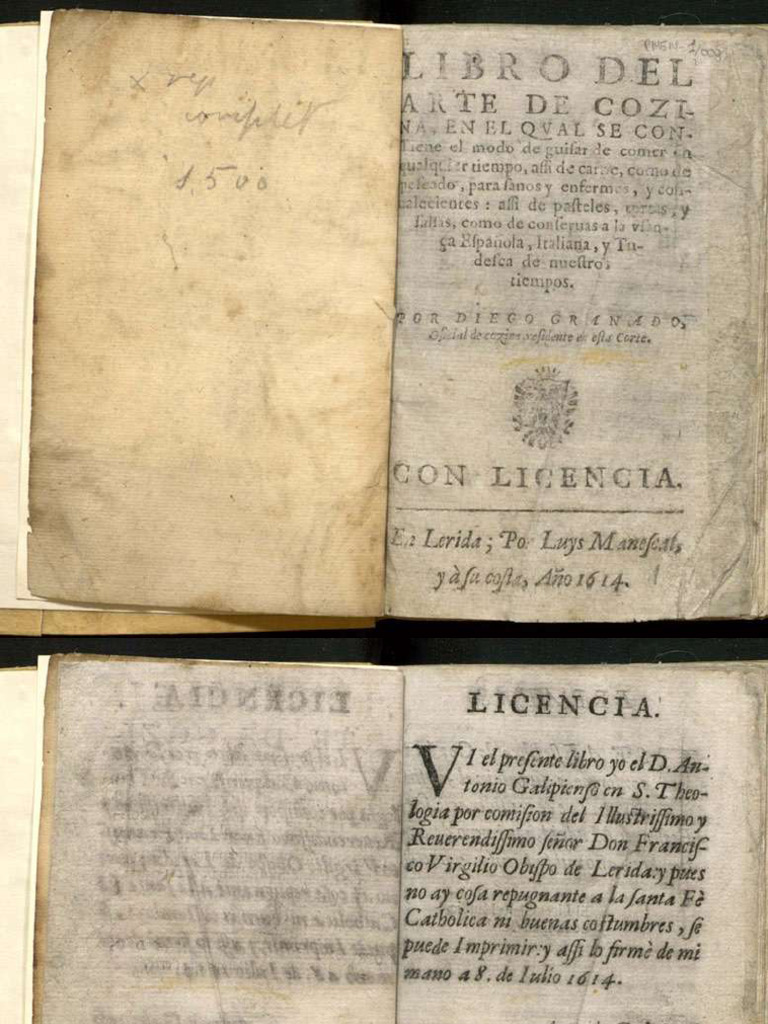 x rep
complet
1,500
LIBRO DEL
ARTE DE COZI-
NA, EN EL QVAL SE CON-
tiene el modo de guisar de comer en
qualquier tiempo, assi de carne, como de
pescado, para sanos y enfermos, y con-
valecientes: assi de pasteles, tortas, y
salsas, como de conseruas a la vsan-
ça Española, Italiana, y Tu-
desca de nuestros
tiempos.
POR DIEGO GRANADO,
Oficial de cozina residente en esta Corte.
CON LICENCIA.
En Lerida; Por Luys Manescal,
y à su costa, Año 1614.
LICENCIA.
VI el presente libro yo el D. An-
tonio Galipienso en S. Theo-
logia por comision del Illustrissimo y
Reuerendissimo señor Don Francis-
co Virgilio Obispo de Lerida: y pues
no ay cosa repugnante a la santa Fè
Catholica ni buenas costumbres, se
puede Imprimir: y assi lo firmè de mi
mano a 8. de Iulio 1614.